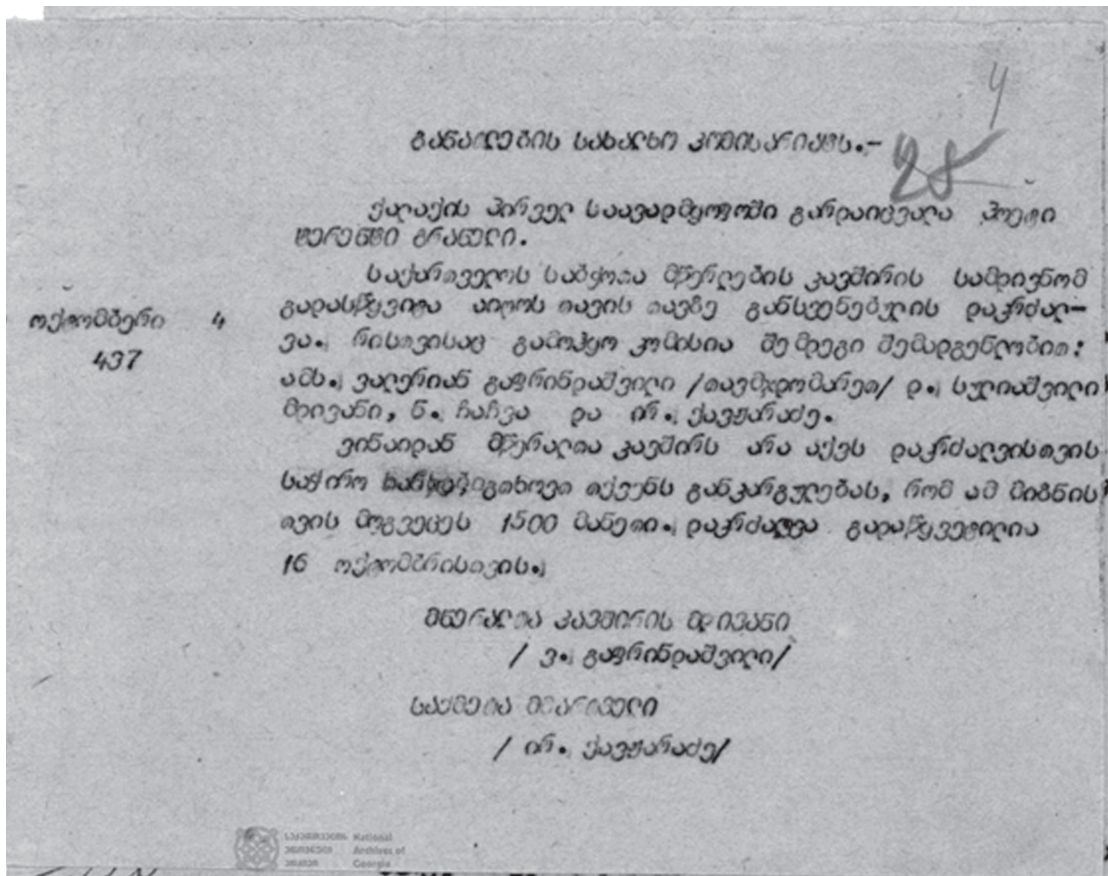 4
განათლების სახალხო კომისარიატს.-
28
ქალაქის პირველ საავადმყოფოში გარდაიცვალა პოეტი
ტერენტი გრანელი.
საქართველოს საბჭოთა მწერლების კავშირის სამდივნომ
გადასწყვიტა აიღოს თავის თავზე განსვენებულის დაკრძალ-
ოქტომბერი 4
ვა. რისთვისაც გამოჰყო კომისია შემდეგი შემადგენლობით:
437
ამხ. ვალერიან გაფრინდაშვილი /თავმჯდომარეთ/ დ. სულიაშვილი
მდივანი, ნ. ჩაჩვა და ირ. ქავჟარაძე.
ვინაიდან მწერალთა კავშირს არა აქვს დაკრძალვისთვის
საჭირო თანხები, გთხოვთ თქვენს განკარგულებას, რომ ამ მიზნის
თვის მოგვეცეს 1500 მანეთი. დაკრძალვა გადაწყვეტილია
16 ოქტომბრისთვის.
მწერალთა კავშირის მდივანი
/ ვ. გაფრინდაშვილი/
საქმეთა მმართველი
/ ირ. ქავჟარაძე/
საქართველოს National
ეროვნული Archives of
არქივი Georgia